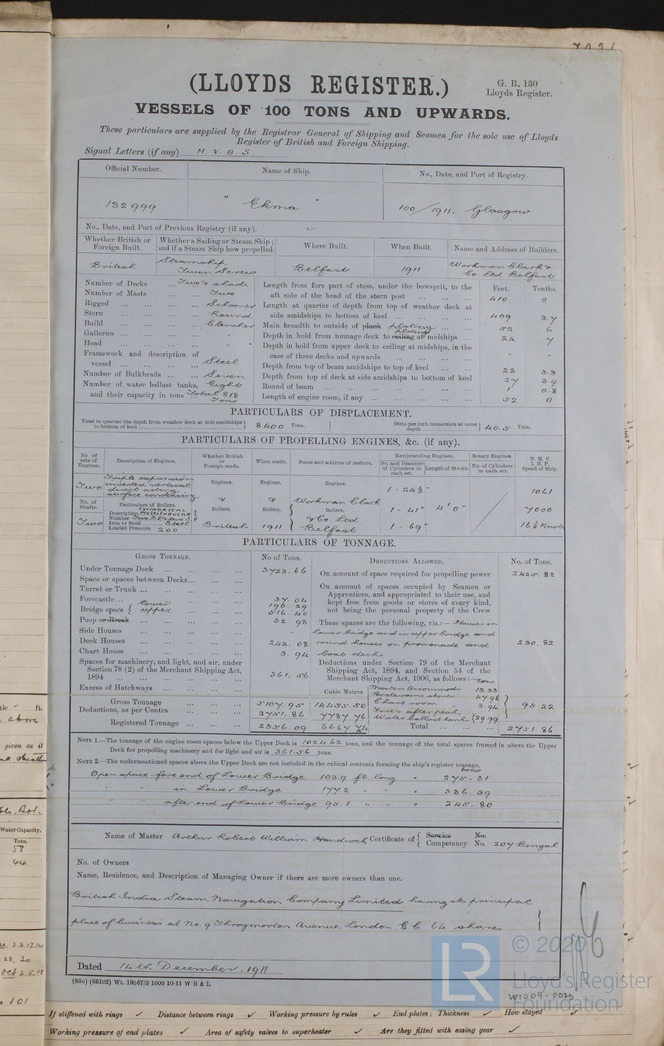 (LLOYDS REGISTER.)
G. R. 130
Lloyds Register.
VESSELS OF 100 TONS AND UPWARDS.
These particulars are supplied by the Registrar General of Shipping and Seamen for the sole use of Lloyds
Register of British and Foreign Shipping.
Signal Letters (if any) H. V. B. S.
Official Number. Name of Ship. No., Date, and Port of Registry.
132999 "Ekma" 100/1911. Glasgow
No., Date, and Port of Previous Registry (if any).
Whether British or Foreign Built. Whether a Sailing or Steam Ship; and if a Steam Ship how propelled. Where Built. When Built. Name and Address of Builders.
British Steamship Twin Screw Belfast 1911 Workman Clark & Co Ltd Belfast
Feet. Tenths.
Number of Decks Two & shade
Number of Masts Two
Rigged Schooner
Stern Round
Build Clencher
Galleries -
Head -
Framework and description of vessel Steel
Number of Bulkheads Seven
Number of water ballast tanks, Eight
and their capacity in tons Total 818 Tons
Length from fore part of stem, under the bowsprit, to the aft side of the head of the stern post 410 0
Length at quarter of depth from top of weather deck at side amidships to bottom of keel 409 3.7
Main breadth to outside of plank plating 52 6
Depth in hold from tonnage deck to ceiling plating at midships 24 7
Depth in hold from upper deck to ceiling at midships, in the case of three decks and upwards - -
Depth from top of beam amidships to top of keel 28 3.3
Depth from top of deck at side amidships to bottom of keel 27 3.9
Round of beam 1 0.8
Length of engine room, if any 52 0
PARTICULARS OF DISPLACEMENT.
Total to quarter the depth from weather deck at side amidships to bottom of keel 8400 Tons. Ditto per inch immersion at same depth 40.5 Tons.
PARTICULARS OF PROPELLING ENGINES, &c. (if any).
No. of sets of Engines. Description of Engines. Whether British or Foreign made. When made. Name and address of makers. Reciprocating Engines. Rotary Engines. N. H. P. I. H. P. Speed of Ship.
No. and Diameter of Cylinders in each set. Length of Stroke. No. of Cylinders in each set.
Two Triple expansion inverted vertical direct acting surface condensing Engines. Engines. Engines. 1 - 24½" 1061
No. of Shafts. Particulars of Boilers. & & Workman Clark 1 - 41" 4' 0" 7000
Description Cylindrical Multitubular Boilers. Boilers. Boilers.
Iron or Steel Steel
Two Loaded Pressure 200 British 1911 & Co. Ltd Belfast 1 - 69" 16½ Knots
PARTICULARS OF TONNAGE.
GROSS TONNAGE. No of Tons. DEDUCTIONS ALLOWED. No. of Tons.
Under Tonnage Deck 3723.66
Space or spaces between Decks
Turret or Trunk
Forecastle 37.04
Bridge space { lower 196.29
upper 516.40
Poop or Break 32.98
Side Houses -
Deck Houses 242.08
Chart House 3.94
Spaces for machinery, and light, and air, under Section 78 (2) of the Merchant Shipping Act, 1894 361.56
Excess of Hatchways
On account of space required for propelling power 2425.82
On account of spaces occupied by Seamen or Apprentices, and appropriated to their use, and kept free from goods or stores of every kind, not being the personal property of the Crew
These spaces are the following, viz:— Houses in lower bridge and in upper bridge and round houses on promenade and boat decks 230.82
Deductions under Section 79 of the Merchant Shipping Act, 1894, and Section 54 of the Merchant Shipping Act, 1906, as follows:— tons
Cubic Metres
Chart room 3.94
Water ballast tank 29.99
95.22
Gross Tonnage 5107.95 14455.50
Deductions, as per Contra 2751.86 7787.76
Registered Tonnage 2356.09 6667.74
Total 2751.86
NOTE 1.—The tonnage of the engine room spaces below the Upper Deck is 1024.62 tons, and the tonnage of the total spaces framed in above the Upper
Deck for propelling machinery and for light and air is 361.56 tons.
NOTE 2.—The undermentioned spaces above the Upper Deck are not included in the cubical contents forming the ship's register tonnage.
tons
Open space fore end of Lower Bridge 103.9 ft. long = 275.31
" " in Lower Bridge 177.2 " " = 336.39
" " after end of Lower Bridge 95.1 " " = 245.80
Name of Master Arthur Robert William Handcock Certificate of { Service No.
Competency No. 207 Bengal
No. of Owners
Name, Residence, and Description of Managing Owner if there are more owners than one.
British India Steam Navigation Company Limited having its principal
place of business at No. 9 Throgmorton Avenue, London E C 64 shares
Dated 14th December, 1911
(83o) (66102) Wt. 19567/3 1000 10-11 W B & L
LR © 2020
Lloyd's Register
Foundation
W1009-0025
If stiffened with rings Distance between rings Working pressure by rules End plates: Thickness How stayed
Working pressure of end plates Area of safety valves to superheater Are they fitted with easing gear
given as
Water Capacity.
Tons
58
44
101